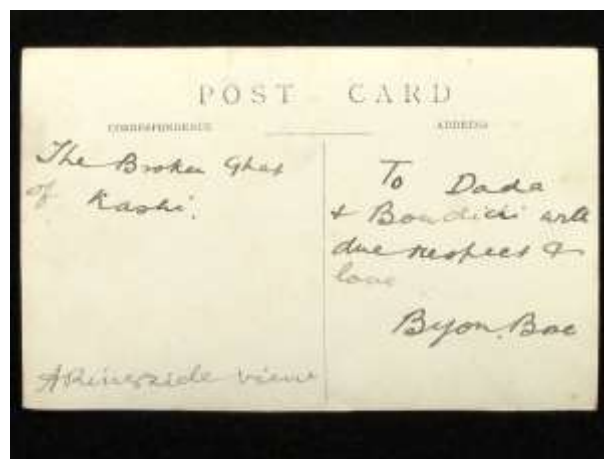 POST CARD
CORRESPONDENCE
ADDRESS
The Broken Ghat
of Kashi.
A Riverside view
To Dada
& Boudidi with
due respect &
love
Byon. Bose